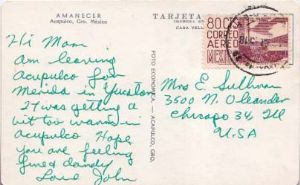 AMANECER
Acapulco, Gro. México
TARJETA
Hi Mom
Am leaving
Acapulco for
Merida in Yucatan
It was getting a
bit too warm in
Acapulco Hope
you are feeling
fine & dandy
Love John
FOTO ECONOMICA - ACAPULCO, GRO.
80C
CORREO
AEREO
MEXICO
Mrs E Sullivan
3500 N. Oleander
Chicago 34, Ill
U.S.A